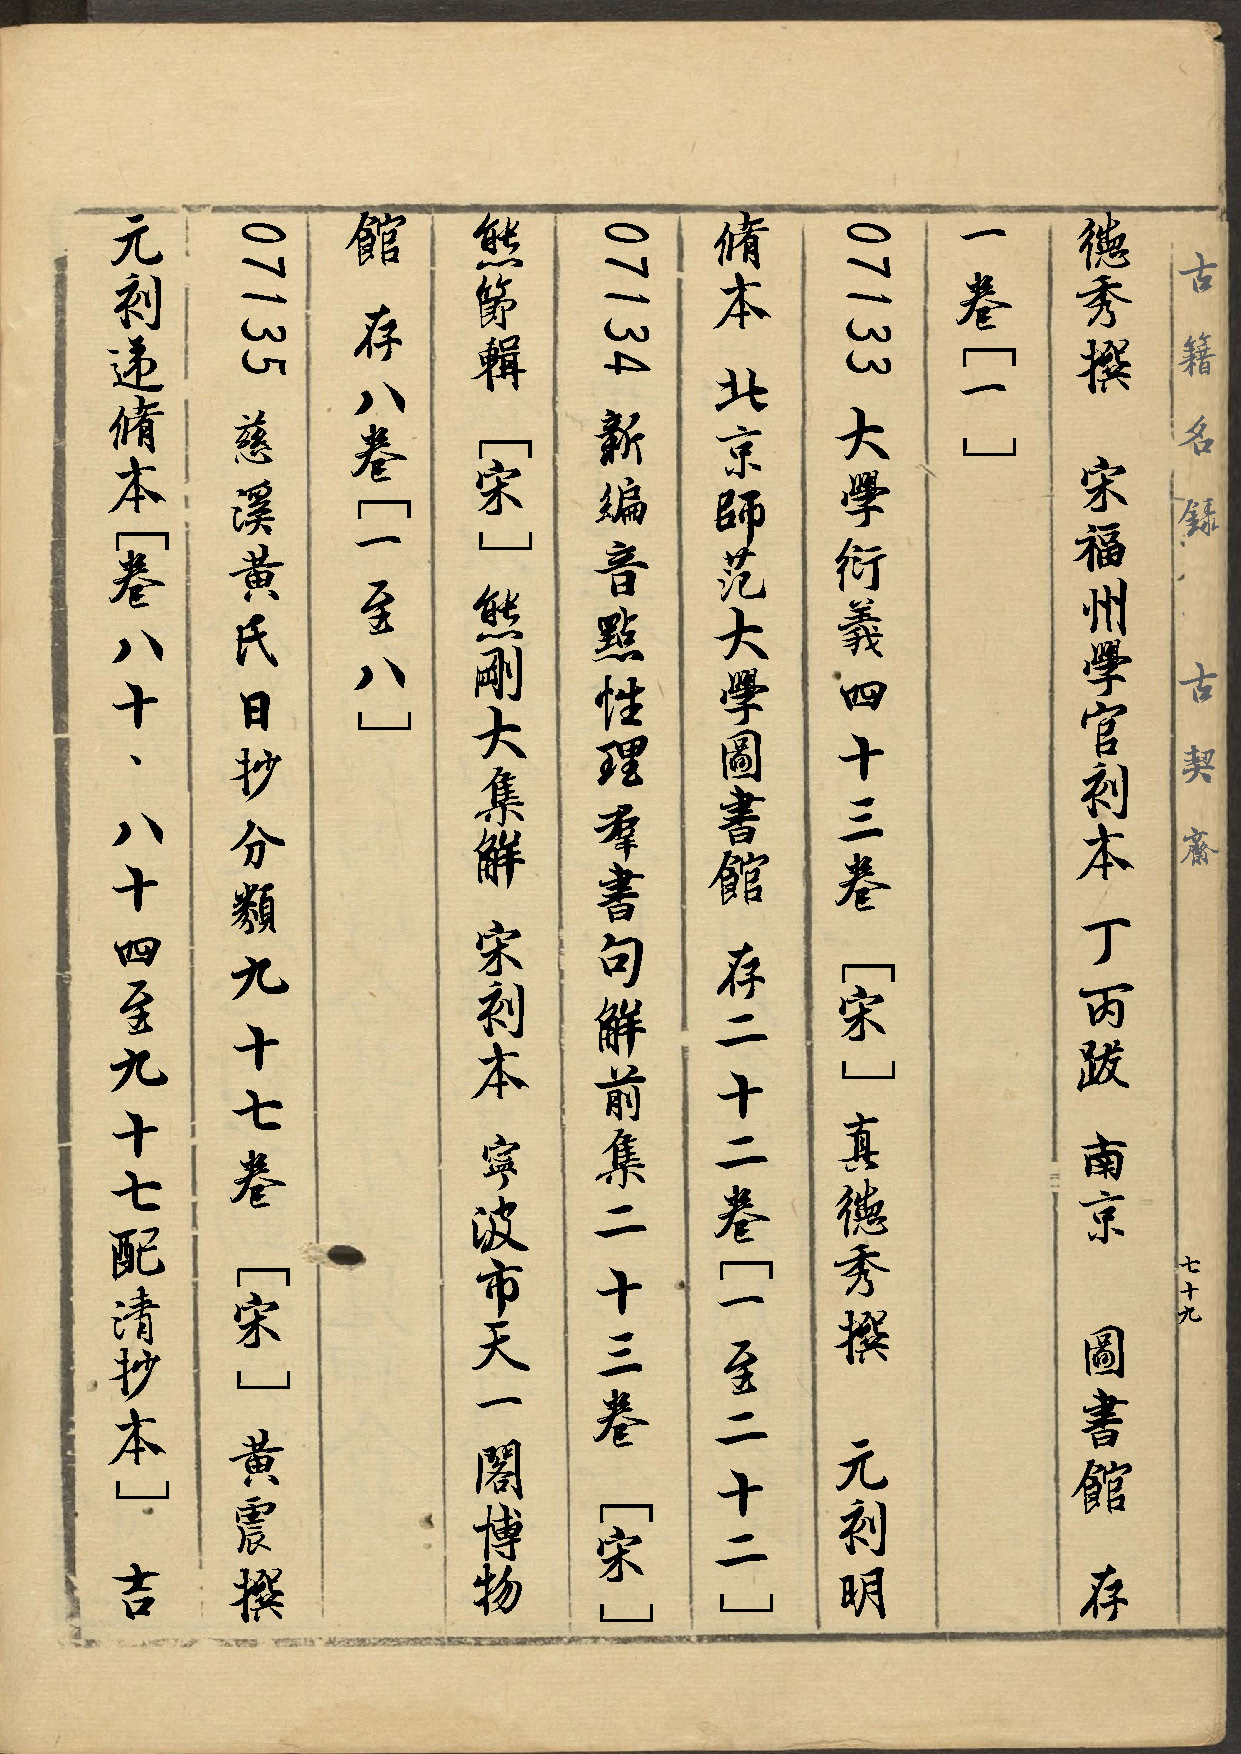 古籍名錄 古契齋
七十九
德秀撰 宋福州學官刻本 丁丙跋 南京 圖書館 存
一卷[一]
07133 大學衍義四十三卷 [宋]真德秀撰 元刻明
脩本 北京師范大學圖書館 存二十二卷[一至二十二]
07134 新編音點性理羣書句解前集二十三卷 [宋]
熊節輯 [宋]熊剛大集解 宋刻本 寧波市天一閣博物
館 存八卷[一至八]
07135 慈溪黃氏日抄分類九十七卷 [宋]黃震撰
元刻遞脩本[卷八十、八十四至九十七配清抄本] 吉